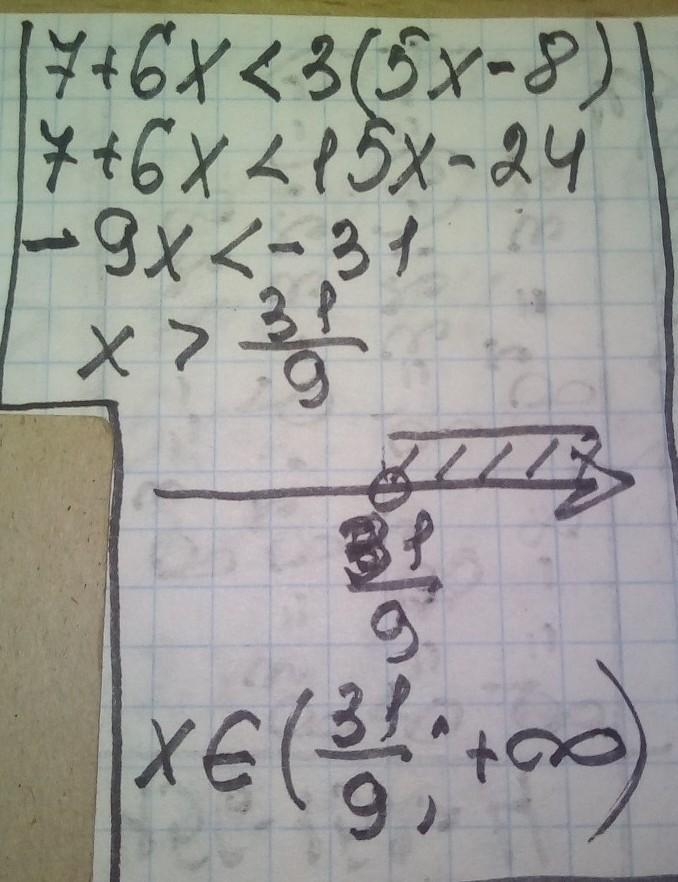 7+6x<3(5x-8)
7+6x<15x-24
-9x<-31
x > 31/9
31/9
x∈(31/9; +∞)